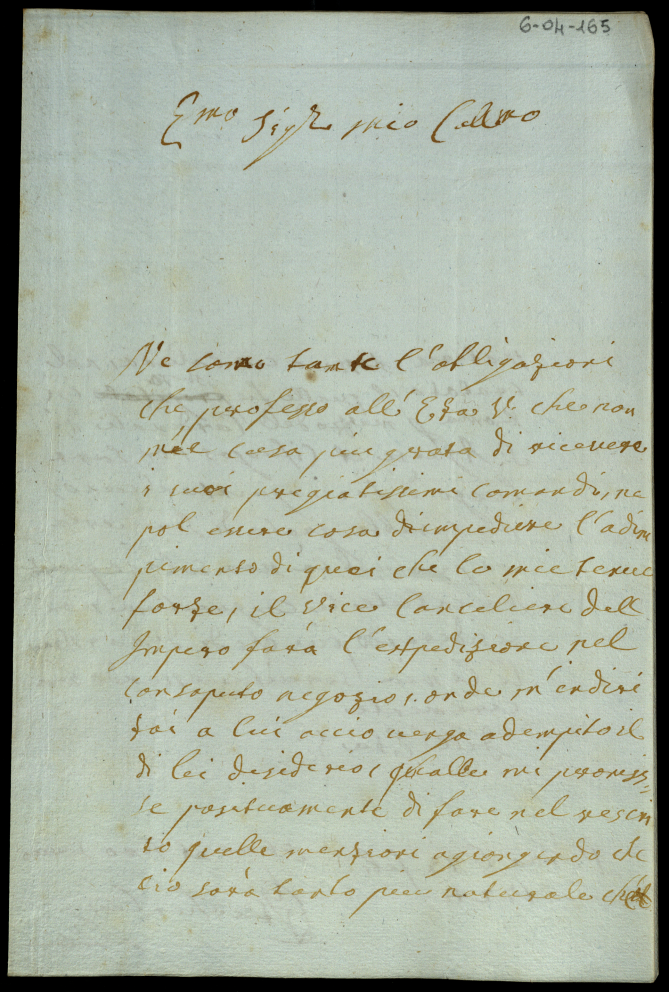 6-04-165
Emo Sigr mio Collmo
Ne sono tante l'obligazioni
che professo all'Eza V. che non
m'è cosa piu grata di ricevere
i suoi pregiatissimi comandi, ne
pol essere cosa di impedire l'adim
pimento di quei che le mie tenue
forze, il Vice Canceliere dell
Impero farà l'expedizione nel
consaputo negozio, onde m'endiri
zai a lui accio venga adempito il
di lei desiderio, quale mi promis=
se positivamente di fare nel rescri
to quelle menzioni agiongendo che
cio sarà tanto piu naturale che